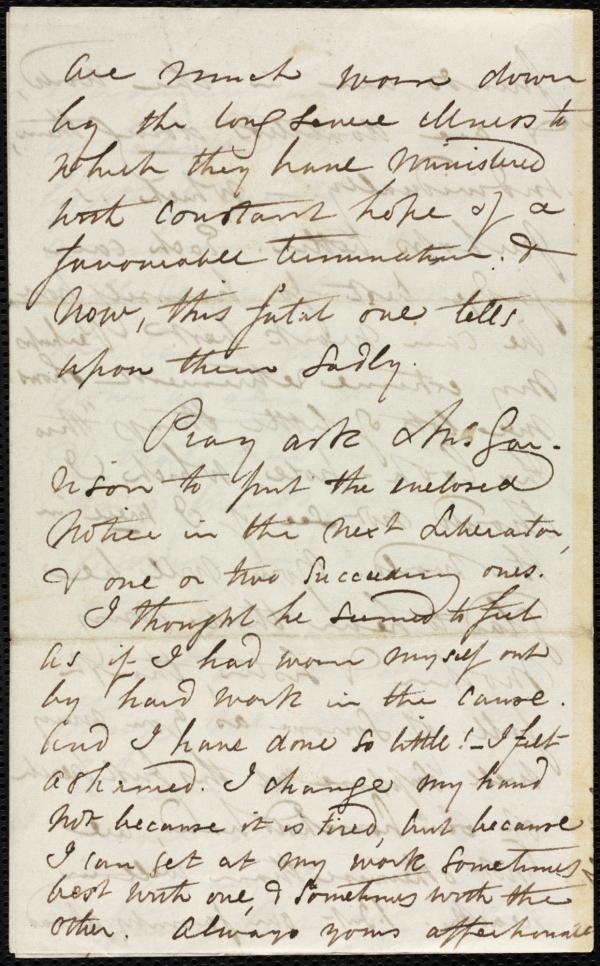 are much worn down
by the long severe illness to
which they have ministered
with constant hope of a
favourable termination. &
now, this fatal one tells
upon them sadly.
Pray ask Mr Gar-
rison to put the enclosed
Notice in the next Liberator,
& one or two succeeding ones.
I thought he seemed to feel
as if I had worn myself out
by hard work in the cause.
And I have done so little! - I felt
ashamed. I change my hand
not because it is tired, but because
I can get at my work sometimes
best with one, & sometimes with the
other. Always yours affectionate